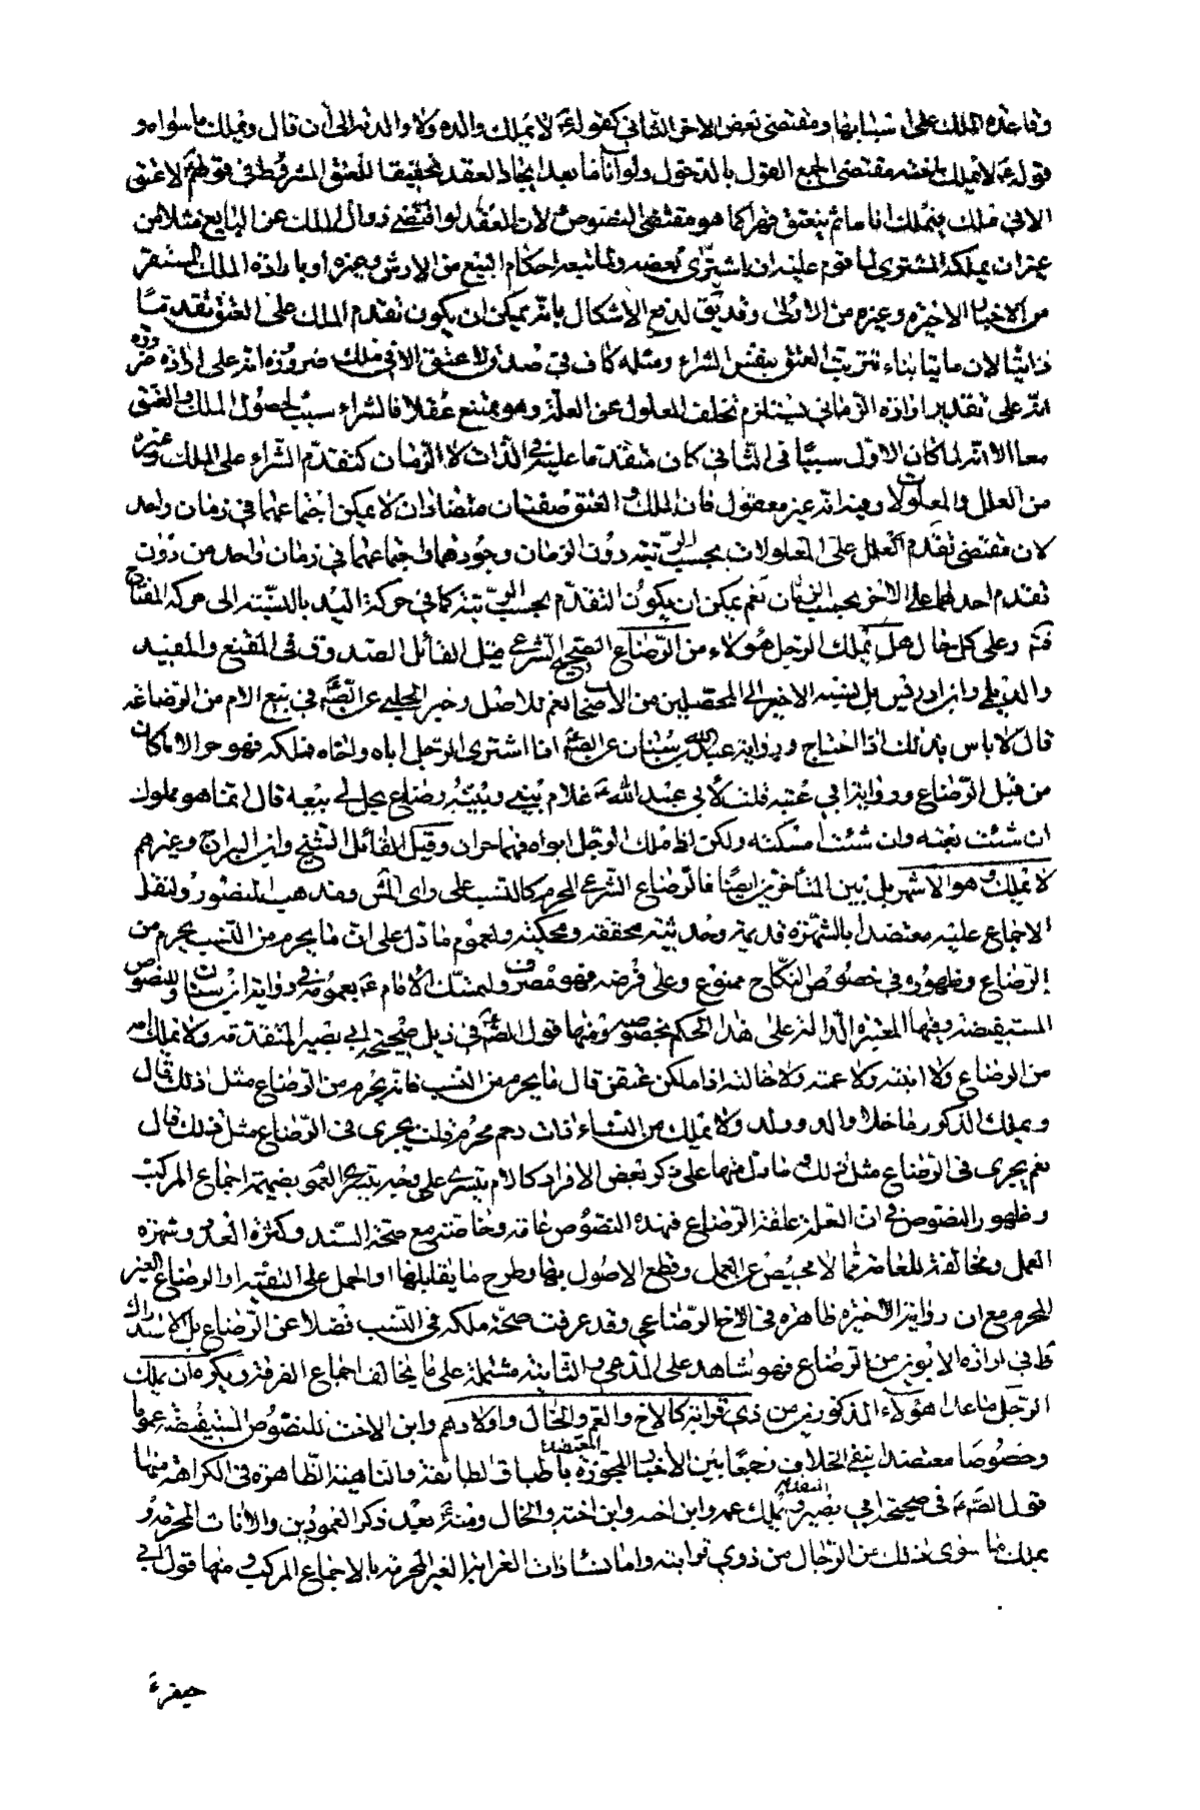 وقاعدة الملك على اسبابها ومقتضى بعض الاخر الثانى كقوله ع لا يملك والده ولا والدته الى ان قال ويملك ما سواه و
قوله ع لا يملك بنفسه مقتضى الجمع القول بالدخول ولو آنا ما بعد ايجاد العقد تحقيقا للعتق المشروط فى قولهم لا عتق
الا فى ملك يتملك انا ما ثم ينعتق قهرا كما هو مقتضى النصوص لان العقد لو اقتضى زوال الملك عن البايع مثلا من
غير ان يملكه المشترى لما قوم عليه ان اشترى بعضه ولما تبعه احكام البيع من الارش وغيره او بارادة الملك المستقر
من الاخبار الاخيرة وغيره من الاولى وقد يق لدفع الاشكال بانه يمكن ان يكون تقدم الملك على العتق تقدما
ذاتيا لا زمانيا بناء ترتب العتق بنفس الشراء ومثله كاف فى صدق لا عتق الا فى ملك ضرورة انه على ارادة ضرورة
انه على تقدير ارادة الزمانى يستلزم تخلف المعلول عن العلة وهو ممتنع عقلا فالشراء سبب لحصول الملك والعتق
معا الا انه لما كان الاول سببا فى الثانى كان متقدما عليه فى الذات لا الزمان كتقدم الشراء على الملك وغيره
من العلل والمعلولات وفيه انه غير معقول فان الملك والعتق صفتان متضادتان لا يمكن اجتماعهما فى زمان واحد
لان مقتضى تقدم العلل على المعلولات بحسب الرتبة دون الزمان وجودهما واجتماعهما فى زمان واحد من دون
تقدم احدهما على الاخر بحسب الزمان نعم يمكن ان يكون التقدم بحسب الرتبة كما فى حركة اليد بالنسبة الى حركة المفتاح
فتم وعلى كل حال هل يملك الرجل هؤلاء من الرضاع الصحيح الشرعى قيل القائل الصدوق فى المقنع والمفيد
والديلمى وابن ادريس بل نسبه الاخير الى المحصلين من الاصحاب نعم للاصل وخبر الحلبى عن الصم فى بيع الام من الرضاعة
قال لا باس بذلك اذا احتاج ورواية عبد الله بن سنان عن الصم اذا اشترى الرجل اباه واخاه فملكه فهو حر الا ما كان
من قبل الرضاع ورواية ابى عتبة قلت لابى عبد الله ع غلام بينى وبينه رضاع يحل لى بيعه قال انما هو مملوك
ان شئت بعته وان شئت امسكته ولكن اذا ملك الرجل ابواه فهما حران وقيل القائل الشيخ وابن البراج وغيرهم
لا يملك وهو الاشهر بل بين المتأخرين ايضا فالرضاع الشرعى المحرم كالنسب على راى الش ومذهب المنصور ولنقل
الاجماع عليه معتضدا بالشهرة قديمة وحديثية محققة ومحكية ولعموم ما دل على ان ما يحرم من النسب يحرم من
الرضاع وظهوره فى خصوص النكاح ممنوع وعلى فرضه فهو مصروف لتمسك الامام ع بعمومه فى رواية ابن سنان وللنصوص
المستفيضة وفيها المعتبرة الدالة على هذا الحكم بخصوصه ومنها قول الصم فى ذيل صحيحة ابى بصير المتقدمة ولا يملك امه
من الرضاع ولا ابنته ولا عمته ولا خالته اذا ملكن عتقن قال ما يحرم من النسب فانه يحرم من الرضاع مثل ذلك قال
ويملك الذكور ما خلا والد وولد ولا يملك من النساء ذات رحم محرم قلت يجرى فى الرضاع مثل ذلك قال
نعم يجرى فى الرضاع مثل ذلك وما دل منها على ذكر بعض الافراد كالام يسرى على وجه يسرى العموم بضميمة اجماع المركب
وظهور النصوص فى ان العلة علقة الرضاع فهذه النصوص عامة وخاصة مع صحة السند وكثرة العدد وشهرة
العمل ومخالفة للعامة مما لا محيص عن العمل وقطع الاصول بها وطرح ما يقابلها او الحمل على التقية او الرضاع الغير
المحرم مع ان رواية الاخيرة ظاهرة فى الاخ الرضاعى وقد عرفت صحة ملكه فى النسب فضلا عن الرضاع بل الاستدراك
ظ فى ارادة الابوين من الرضاع فهو شاهد على المدعى والثانية مشتملة على ما يخالف اجماع الفرقة ويكره ان يملك
الرجل ما عدا هؤلاء المذكورين من ذى قرابة كالاخ والعم والخال واولادهم وابن الاخت للنصوص المستفيضة عموما
وخصوصا معتضدا بنفى الخلاف وجمعا بين الاخبار المجوزة المعتضدة باطباق الطائفة والناهية الظاهرة فى الكراهة منها
قول الصم ع فى صحيحة ابى بصير المتقدمة ويملك عمه وابن اخيه وابن اخته والخال ومنه بعد ذكر العمودين والاناث المحرمة و
يملك ما سوى ذلك من الرجال من ذوى قرابته واما نساء ذات القرابة الغير المحرمة بالاجماع المركب ومنها قول ابى
جعفر ع